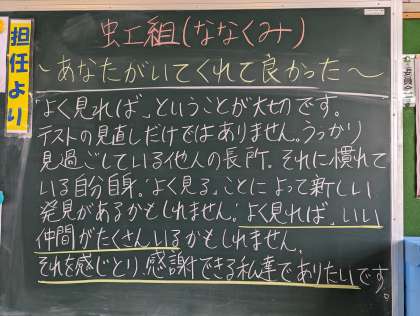 担任より
虹組(ななくみ)
～あなたがいてくれて良かった～
「よく見れば」ということが大切です。
テストの見直しだけではありません。うっかり
見過ごしている他人の長所。それに慣れて
いる自分自身。「よく見る」ことによって新しい
発見があるかもしれません。「よく見れば」、いい
仲間がたくさんいるかもしれません。
それを感じとり、感謝できる私達でありたいです。